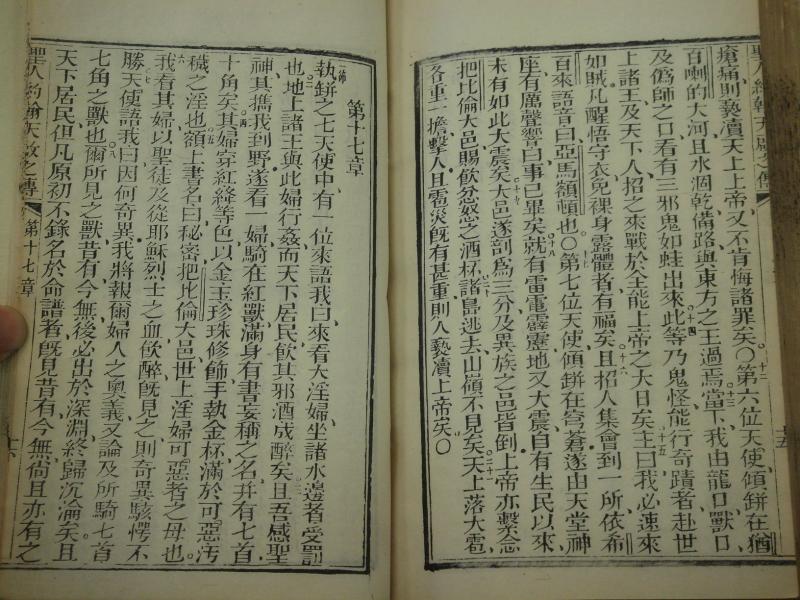 聖人約翰天啟之傳
瘡痛則褻瀆天上上帝又不肯悔諸罪矣〇十二第六位天使傾缾在猶
百喇的大河且水涸乾備路與東方之王過焉十三當下我由龍口獸口
及偽師之口看有三邪鬼如蛙出來十四此等乃鬼怪能行奇蹟者赴世
上諸王及天下人招之來戰於全能上帝之大日矣十五主曰我必速來
如賊凡醒悟守衣免裸身露體者有福矣十六且招人集會到一所依希
百來語音曰亞馬額頓也〇十七第七位天使傾缾在穹蒼遂由天堂神
座有厲聲響曰事已畢矣十八就有雷電霹靂地又大震自有生民以來
未有如此大震矣十九大邑遂剖為三分及異族之邑皆倒上帝亦繫念
把比倫大邑賜飲忿怒之酒杯二十諸島逃去山嶺不見矣二十一天上落大雹
各重一擔擊人且雹災既有甚重則人褻瀆上帝矣〇
十五
第十七章
一節執缾之七天使中有一位來語我曰來看大淫婦坐諸水邊者受罰
也二地上諸王與此婦行姦而天下居民飲其邪酒成醉矣三且吾感聖
神其攜我到野遂看一婦騎在紅獸滿身有書妄稱之名并有七首
十角矣四其婦穿紅絳等色以金玉珍珠修飾手執金杯滿於可惡汚
穢之淫也五額上書名曰秘密把比倫大邑世上淫婦可惡者之母也
六我看其婦以聖徒及從耶穌烈士之血飲醉既見之則奇異駭愕不
勝七天使語我曰因何奇異我將報爾婦人之奧義又論及所騎七首
七角之獸也八爾所見之獸昔有今無後必出於深淵終歸沉淪矣且
天下居民但凡原初不錄名於命譜者既見昔有今無尚且亦有之
聖人約翰天啟之傳
第十七章
十六